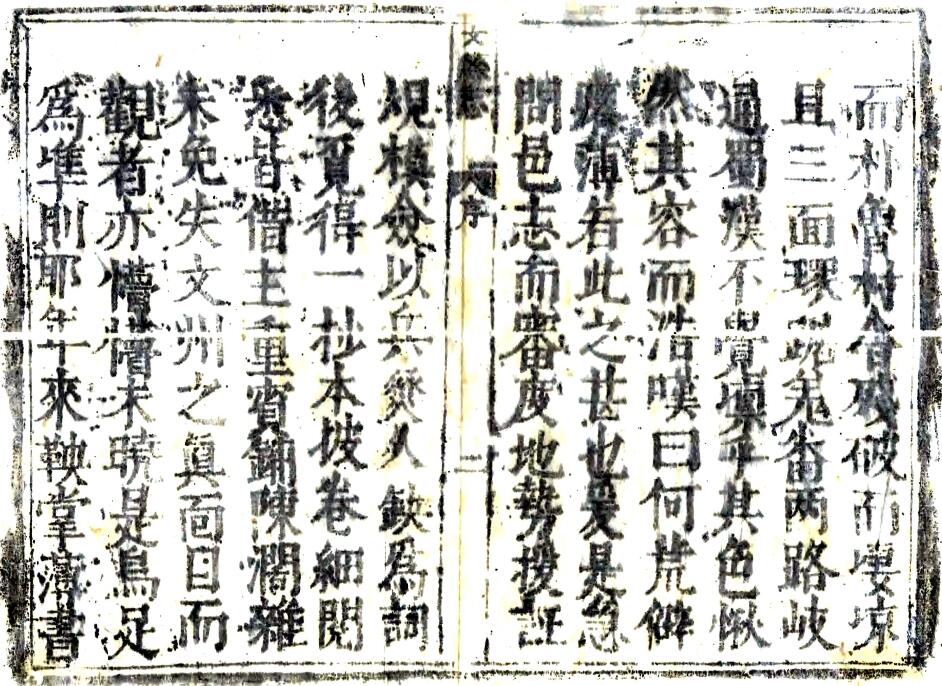 而朴魯村舍殘破而凄凉
且三面環羌番兩路岐
通蜀漢不覺凛乎其色愀
然其容而浩嘆曰何荒僻
薄若此之甚也爰是急
問邑志而審度地勢援証
文縣志 序 二
規模僉以兵燹人缺爲詞
後覓得一抄本披卷細閱
悉皆借主重賓鋪陳濶雜
未免失文州之眞面目而
觀者亦懵懵未曉是烏足
爲準則耶年來鞅掌簿書